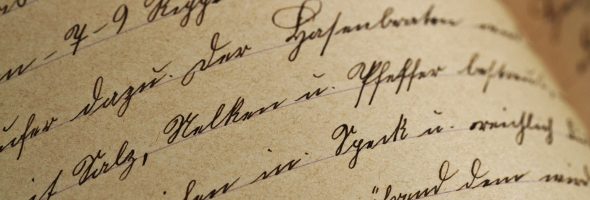 n - 7 - 9 Ripp
ufer dazu. Der Hasenbraten
it Salz, Nelken u. Pfeffer bestreu
in Speck u. reichlich
dem wird